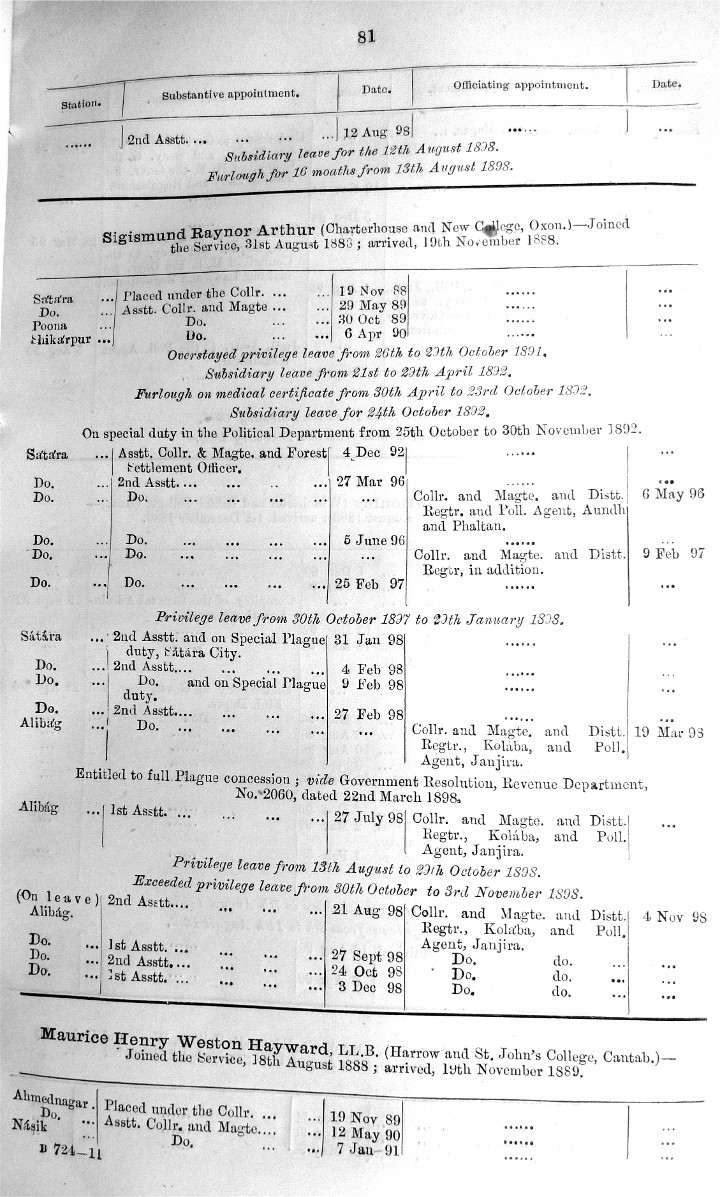 81
Station. Substantive appointment. Date. Officiating appointment. Date.
...... 2nd Asstt. ... ... ... ... 12 Aug 98 ...... ...
Subsidiary leave for the 12th August 1898.
Furlough for 16 months from 13th August 1898.
Sigismund Raynor Arthur (Charterhouse and New College, Oxon.)—Joined
the Service, 31st August 1888; arrived, 19th November 1888.
Sátára ... Placed under the Collr. ... ... 19 Nov 88 ...... ...
Do. ... Asstt. Collr. and Magte ... ... 29 May 89 ...... ...
Poona ... Do. ... ... 30 Oct 89 ...... ...
Shikárpur ... Do. ... ... 6 Apr 90 ...... ...
Overstayed privilege leave from 26th to 29th October 1891.
Subsidiary leave from 21st to 29th April 1892.
Furlough on medical certificate from 30th April to 23rd October 1892.
Subsidiary leave for 24th October 1892.
On special duty in the Political Department from 25th October to 30th November 1892.
Sátára ... Asstt. Collr. & Magte. and Forest 4 Dec 92 ...... ...
Settlement Officer.
Do. ... 2nd Asstt. ... ... .. ... 27 Mar 96 ...... ...
Do. ... Do. ... ... ... ... ... Collr. and Magte. and Distt. 6 May 96
Regtr. and Poll. Agent, Aundh
and Phaltan.
Do. ... Do. ... ... ... ... 5 June 96 ...... ...
Do. ... Do. ... ... ... ... ... Collr. and Magte. and Distt. 9 Feb 97
Regtr, in addition.
Do. ... Do. ... ... ... ... 25 Feb 97 ...... ...
Privilege leave from 30th October 1897 to 29th January 1898.
Sátára ... 2nd Asstt. and on Special Plague 31 Jan 98 ...... ...
duty, Sátára City.
Do. ... 2nd Asstt.... ... ... ... 4 Feb 98 ...... ...
Do. ... Do. and on Special Plague 9 Feb 98 ...... ...
duty.
Do. ... 2nd Asstt.... ... ... ... 27 Feb 98 ...... ...
Alibág ... Do. ... ... ... ... ... Collr. and Magte. and Distt. 19 Mar 98
Regtr., Kolába, and Poll.
Agent, Janjira.
Entitled to full Plague concession; vide Government Resolution, Revenue Department,
No. 2060, dated 22nd March 1898.
Alibág ... 1st Asstt. ... ... ... ... 27 July 98 Collr. and Magte. and Distt. ...
Regtr., Kolába, and Poll.
Agent, Janjira.
Privilege leave from 13th August to 29th October 1898.
Exceeded privilege leave from 30th October to 3rd November 1898.
(On leave) 2nd Asstt.... ... ... ... 21 Aug 98 Collr. and Magte. and Distt. 4 Nov 98
Alibág. Regtr., Kolába, and Poll.
Agent, Janjira.
Do. ... 1st Asstt. ... ... ... ... 27 Sept 98 Do. do. ... ...
Do. ... 2nd Asstt.... ... ... ... 24 Oct 98 Do. do. ... ...
Do. ... 1st Asstt. ... ... ... ... 3 Dec 98 Do. do. ... ...
Maurice Henry Weston Hayward, LL.B. (Harrow and St. John's College, Cantab.)—
Joined the Service, 18th August 1888; arrived, 19th November 1889.
Ahmednagar. Placed under the Collr. ... ... 19 Nov 89 ...... ...
Do. ... Asstt. Collr. and Magte.... ... 12 May 90 ...... ...
Násik ... Do. ... ... 7 Jan 91 ...... ...
B 724—11